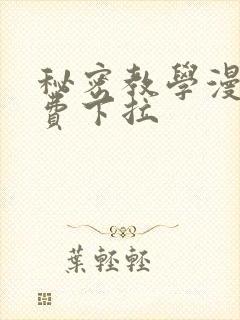 秘密教學漫
費下拉
葉輕輕